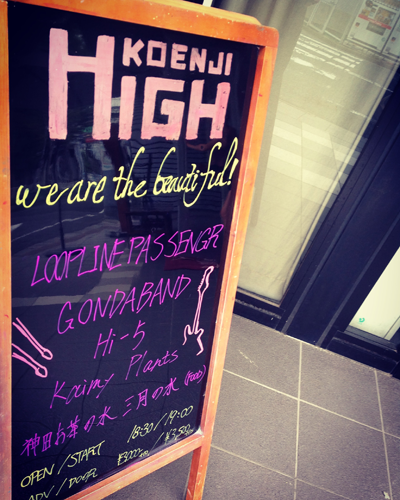 KOENJI
HIGH
we are the beautiful!
LOOPLINEPASSENGR
GONDABAND
Hi-5
Kaimy Plants
神田お茶の水 三月の水 (FOOD)
OPEN/START 18:30/19:00
ADV/DOOR ¥3000 ¥3,500